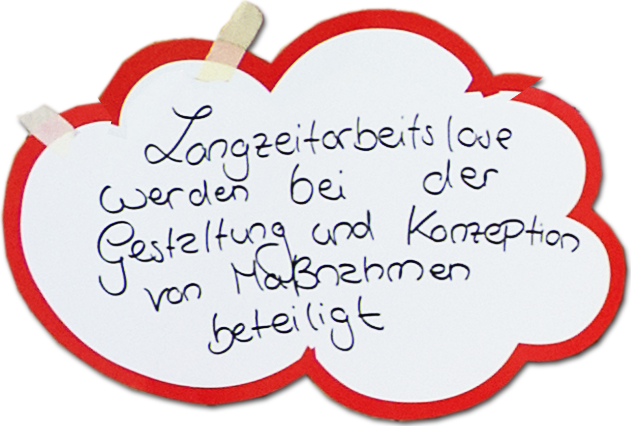 Langzeitarbeitslose
werden bei der
Gestaltung und Konzeption
von Maßnahmen
beteiligt